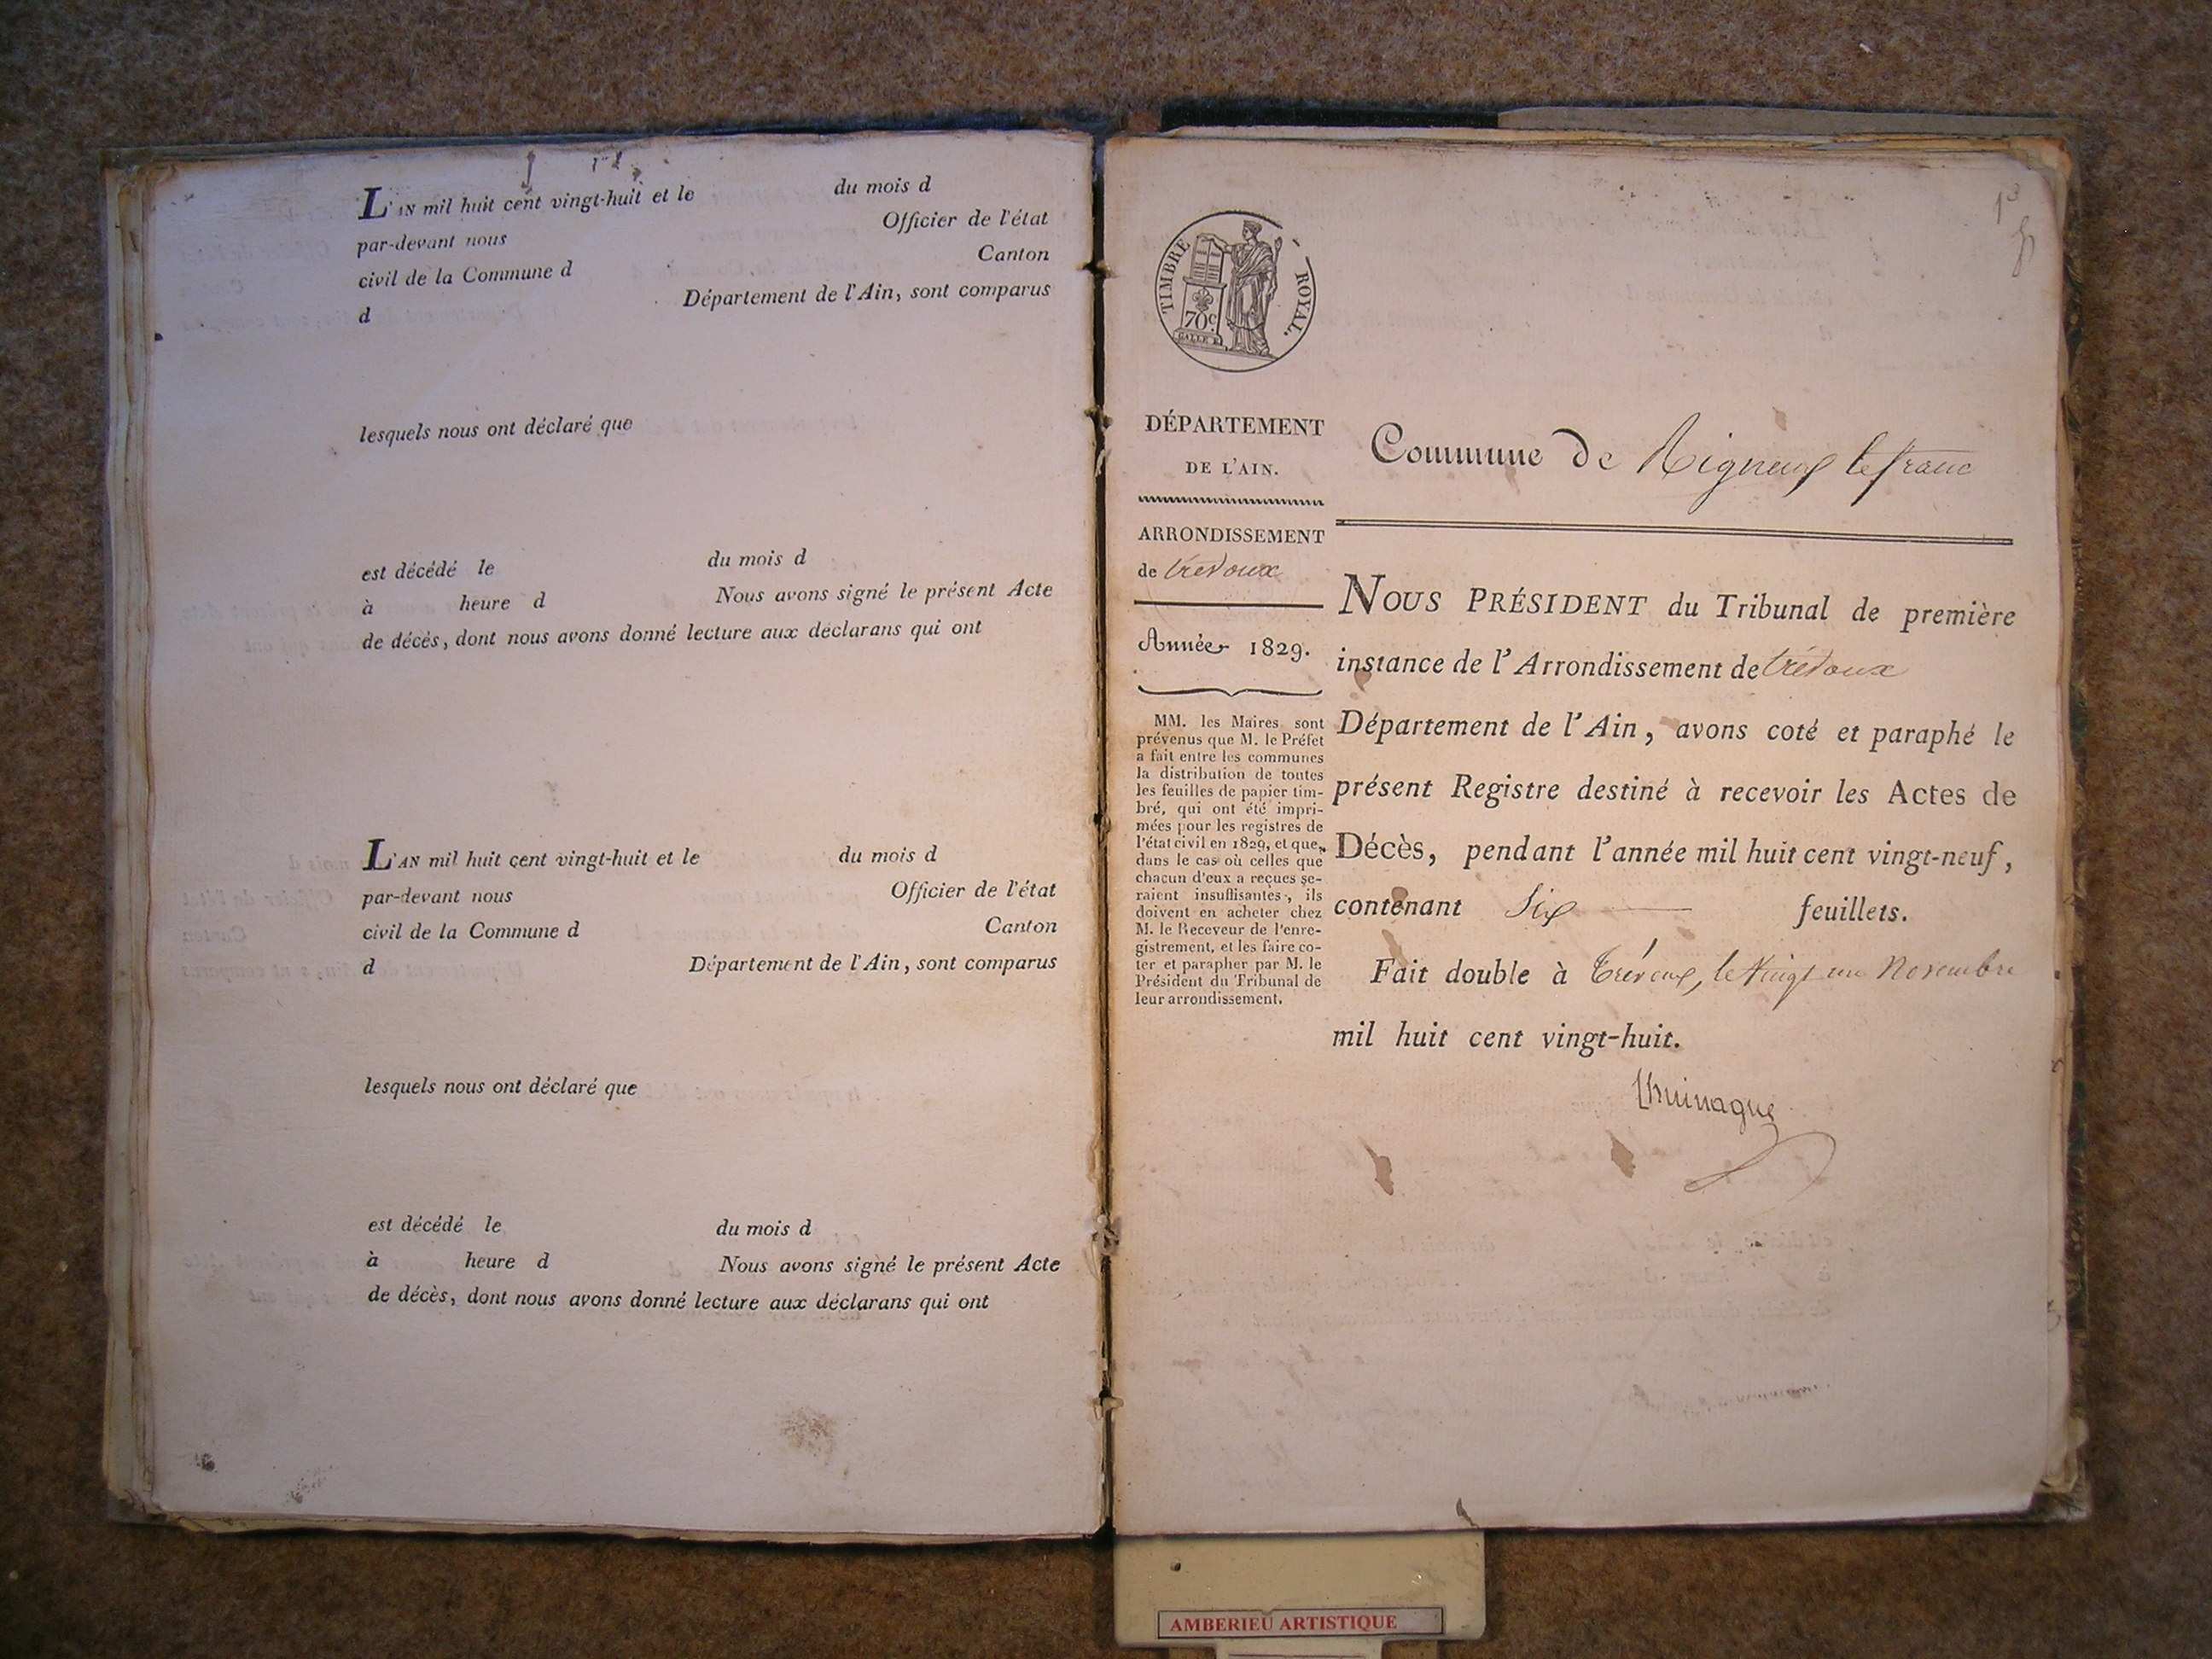 L'AN mil huit cent vingt-huit et le du mois d
par-devant nous Officier de l'état
civil de la Commune d Canton
d Département de l'Ain, sont comparus
lesquels nous ont déclaré que
est décédé le du mois d
à heure d Nous avons signé le présent Acte
de décès, dont nous avons donné lecture aux déclarans qui ont
L'AN mil huit cent vingt-huit et le du mois d
par-devant nous Officier de l'état
civil de la Commune d Canton
d Département de l'Ain, sont comparus
lesquels nous ont déclaré que
est décédé le du mois d
à heure d Nous avons signé le présent Acte
de décès, dont nous avons donné lecture aux déclarans qui ont
TIMBRE ROYAL.
70c
DÉPARTEMENT
DE L'AIN.
ARRONDISSEMENT
de trévoux
Année 1829.
MM. les Maires sont
prévenus que M. le Préfet
a fait entre les communes
la distribution de toutes
les feuilles de papier tim-
bré, qui ont été impri-
mées pour les registres de
l'état civil en 1829, et que,
dans le cas où celles que
chacun d'eux a reçues se-
raient insuffisantes, ils
doivent en acheter chez
M. le Receveur de l'enre-
gistrement, et les faire co-
ter et parapher par M. le
Président du Tribunal de
leur arrondissement.
Commune de Rigneux le franc
NOUS PRÉSIDENT du Tribunal de première
instance de l'Arrondissement de trévoux
Département de l'Ain, avons coté et paraphé le
présent Registre destiné à recevoir les Actes de
Décès, pendant l'année mil huit cent vingt-neuf,
contenant Six feuillets.
Fait double à Trévoux, le Vingt un Novembre
mil huit cent vingt-huit.
AMBERIEU ARTISTIQUE